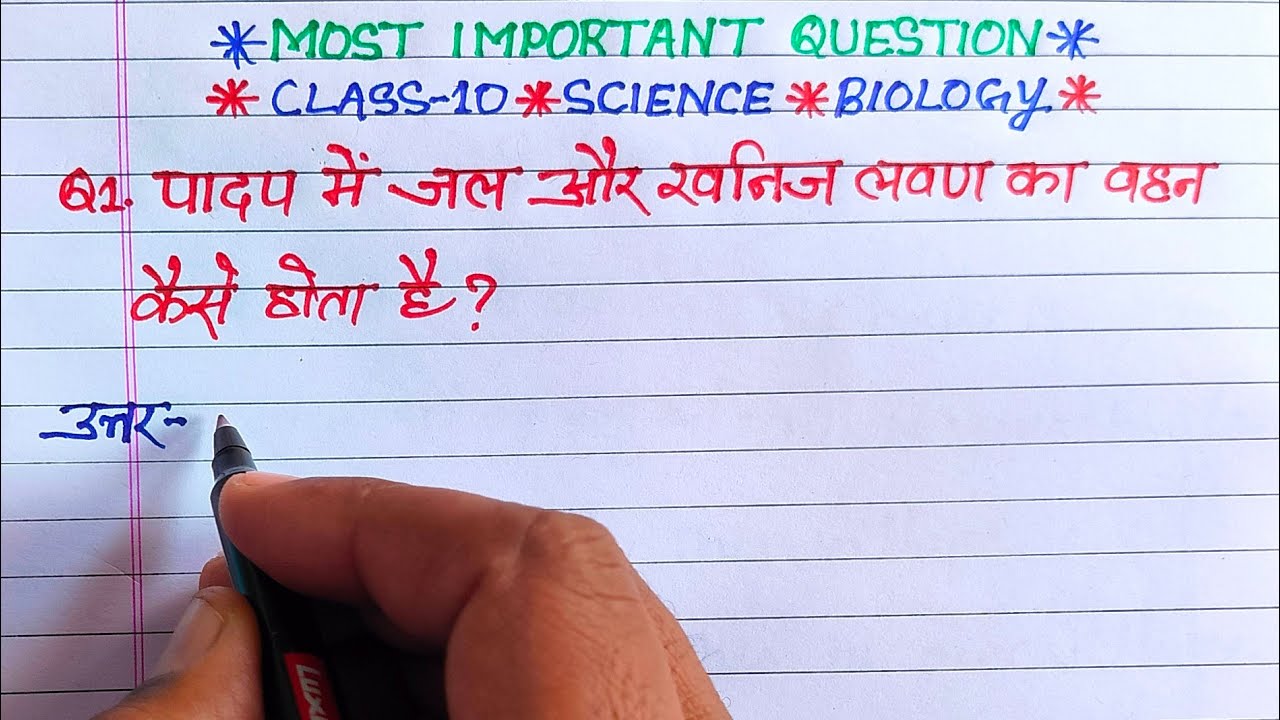 *MOST IMPORTANT QUESTION*
* CLASS-10 * SCIENCE * BIOLOGY. *
Q1. पादप में जल और खनिज लवण का वहन
कैसे होता है?
उत्तर-